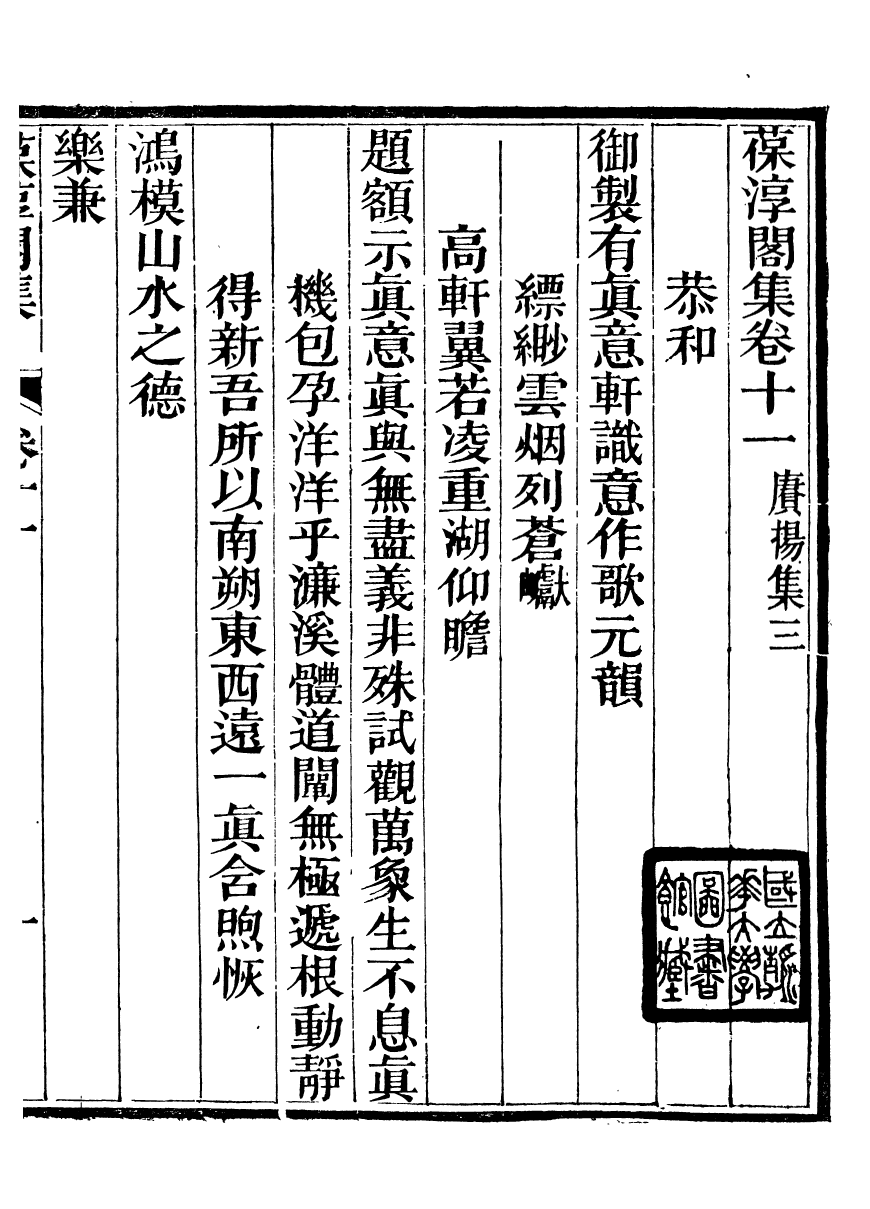 葆淳閣集卷十一　賡揚集三
恭和
御製有眞意軒識意作歌元韻
縹緲雲烟列蒼巘
高軒翼若凌重湖仰瞻
題額示眞意眞與無盡義非殊試觀萬象生不息眞
機包孕洋洋乎濂溪體道闡無極遞根動靜
得新吾所以南朔東西遠一眞含煦恢
鴻模山水之德
樂兼
葆淳閣集
卷十一
一
國立清華大學圖書館藏